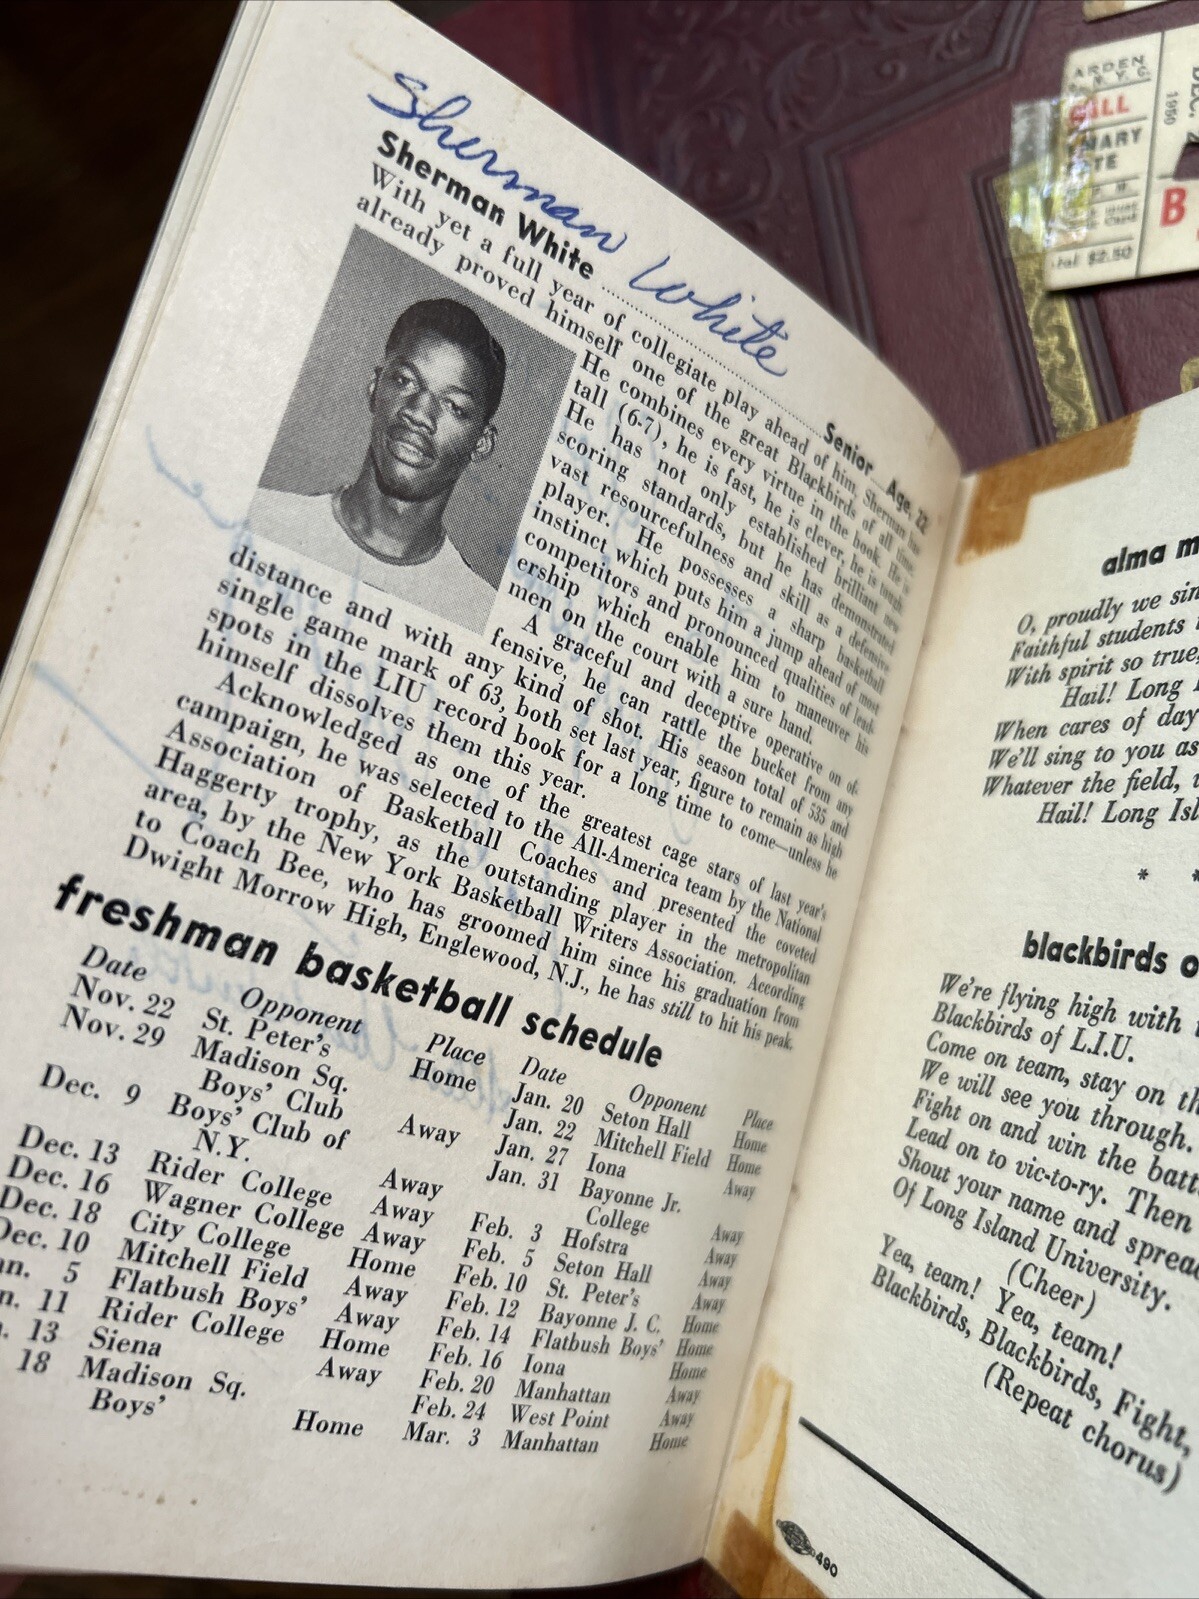 Sherman White
Sherman White ........ Senior ... Age, 22
With yet a full year of collegiate play ahead of him, Sherman has
already proved himself one of the great Blackbirds of all time.
He combines every virtue in the book. He is
tall (6-7), he is fast, he is clever, he is tough.
He has not only established brilliant new
scoring standards, but he has demonstrated
vast resourcefulness and skill as a defensive
player. He possesses a sharp basketball
instinct which puts him a jump ahead of most
competitors and pronounced qualities of lead-
ership which enable him to maneuver his
men on the court with a sure hand.
A graceful and deceptive operative on of-
fensive, he can rattle the bucket from any
distance and with any kind of shot. His season total of 535 and
single game mark of 63, both set last year, figure to remain as high
spots in the LIU record book for a long time to come—unless he
himself dissolves them this year.
Acknowledged as one of the greatest cage stars of last year's
campaign, he was selected to the All-America team by the National
Association of Basketball Coaches and presented the coveted
Haggerty trophy, as the outstanding player in the metropolitan
area, by the New York Basketball Writers Association. According
to Coach Bee, who has groomed him since his graduation from
Dwight Morrow High, Englewood, N.J., he has still to hit his peak.
freshman basketball schedule
Date Opponent Place
Nov. 22 St. Peter's Home
Nov. 29 Madison Sq.
Boys' Club Away
Dec. 9 Boys' Club of
N.Y. Away
Dec. 13 Rider College Away
Dec. 16 Wagner College Away
Dec. 18 City College Home
Dec. 10 Mitchell Field Away
an. 5 Flatbush Boys' Away
n. 11 Rider College Home
. 13 Siena Away
18 Madison Sq.
Boys' Home
Date Opponent Place
Jan. 20 Seton Hall Home
Jan. 22 Mitchell Field Home
Jan. 27 Iona Away
Jan. 31 Bayonne Jr.
College Away
Feb. 3 Hofstra Away
Feb. 5 Seton Hall Away
Feb. 10 St. Peter's Away
Feb. 12 Bayonne J. C. Home
Feb. 14 Flatbush Boys' Home
Feb. 16 Iona Home
Feb. 20 Manhattan Away
Feb. 24 West Point Away
Mar. 3 Manhattan Home
alma m
O, proudly we sin
Faithful students
With spirit so true,
Hail! Long I
When cares of day
We'll sing to you as
Whatever the field,
Hail! Long Isl
* *
blackbirds o
We're flying high with
Blackbirds of L.I.U.
Come on team, stay on th
We will see you through.
Fight on and win the batt
Lead on to vic-to-ry. Then
Shout your name and sprea
Of Long Island University.
(Cheer)
Yea, team! Yea, team!
Blackbirds, Blackbirds, Fight,
(Repeat chorus)
490
ARDEN
N.Y.C.
GILL
NARY
TE
P. M.
$2.50
DEC. 2
1950
B